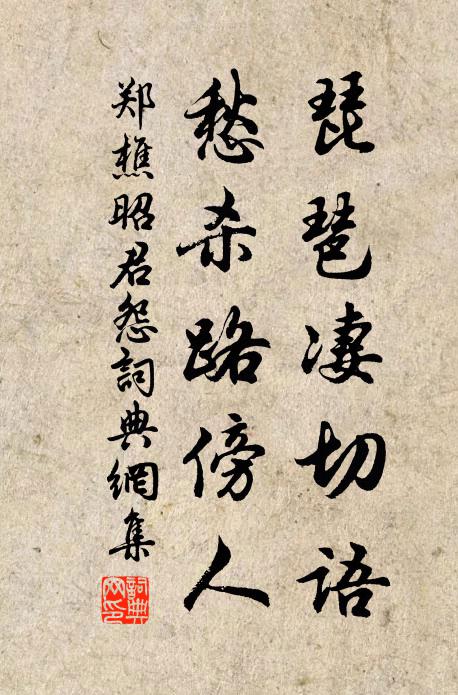 琵琶凄切語
愁杀路傍人
郑樵昭君怨詞典網集
詞典
网印